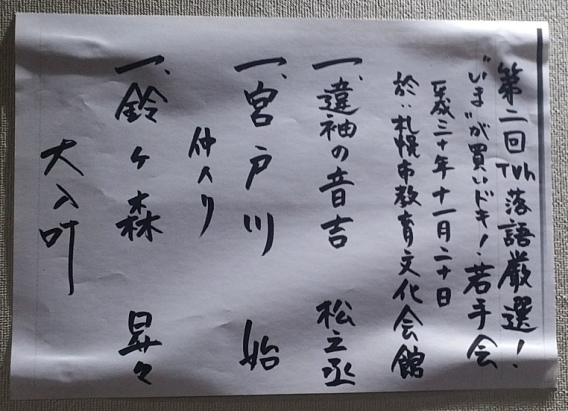 第二回TVh落語厳選!
"いま"が買いドキ!若手会
平成三十年十一月二十日
於:札幌市教育文化会館
一、違袖の音吉 松之丞
一、宮戸川 始
仲入り
一、鈴ヶ森 昇々
大入叶